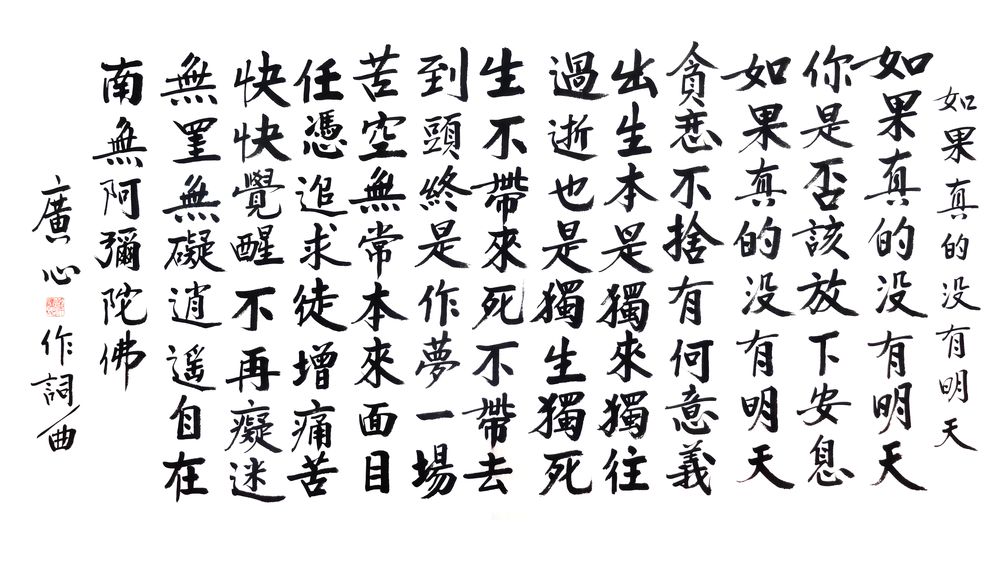 如果真的没有明天
如果真的没有明天
你是否該放下安息
如果真的没有明天
貪恋不捨有何意義
出生本是獨來獨往
過逝也是獨生獨死
生不帶來死不帶去
到頭終是作夢一場
苦空無常本來面目
任憑追求徒增痛苦
快快覺醒不再癡迷
無罣無礙逍遥自在
南無阿彌陀佛
廣心作詞曲